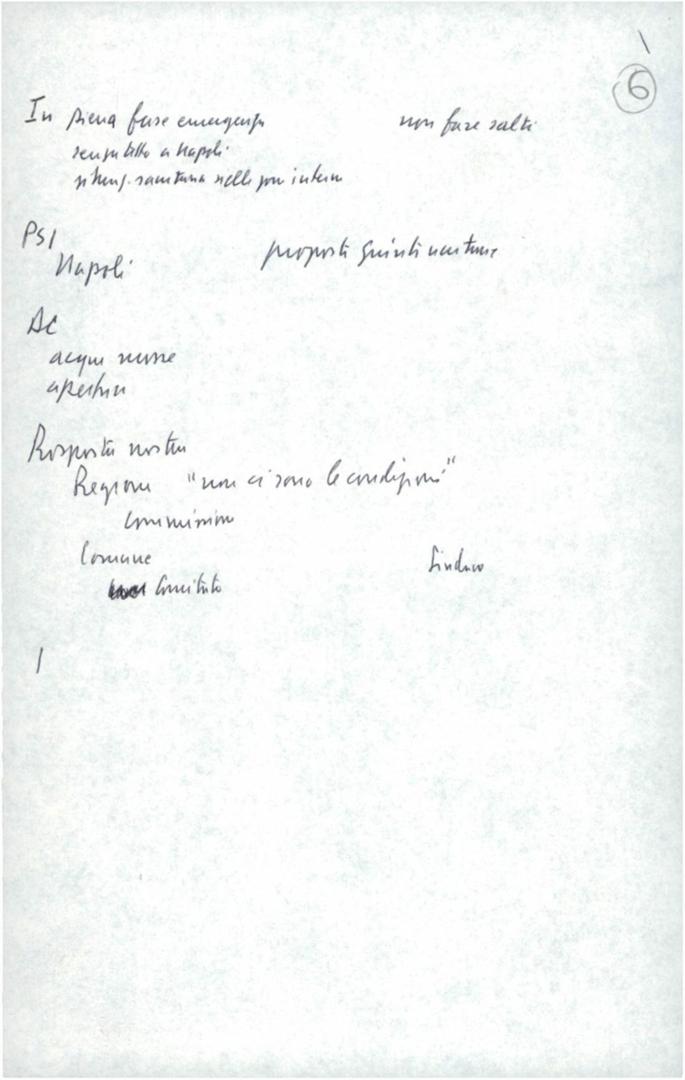 6
In piena fase emergenza non fare salti
senzatetto a Napoli
situaz. sanitaria nelle zone interne
PSI
Napoli proposta Giunte unitarie
DC
acque mosse
apertura
Risposta nostra
Regione "non ci sono le condizioni"
Commissioni
Comune Sindaco
Comitato